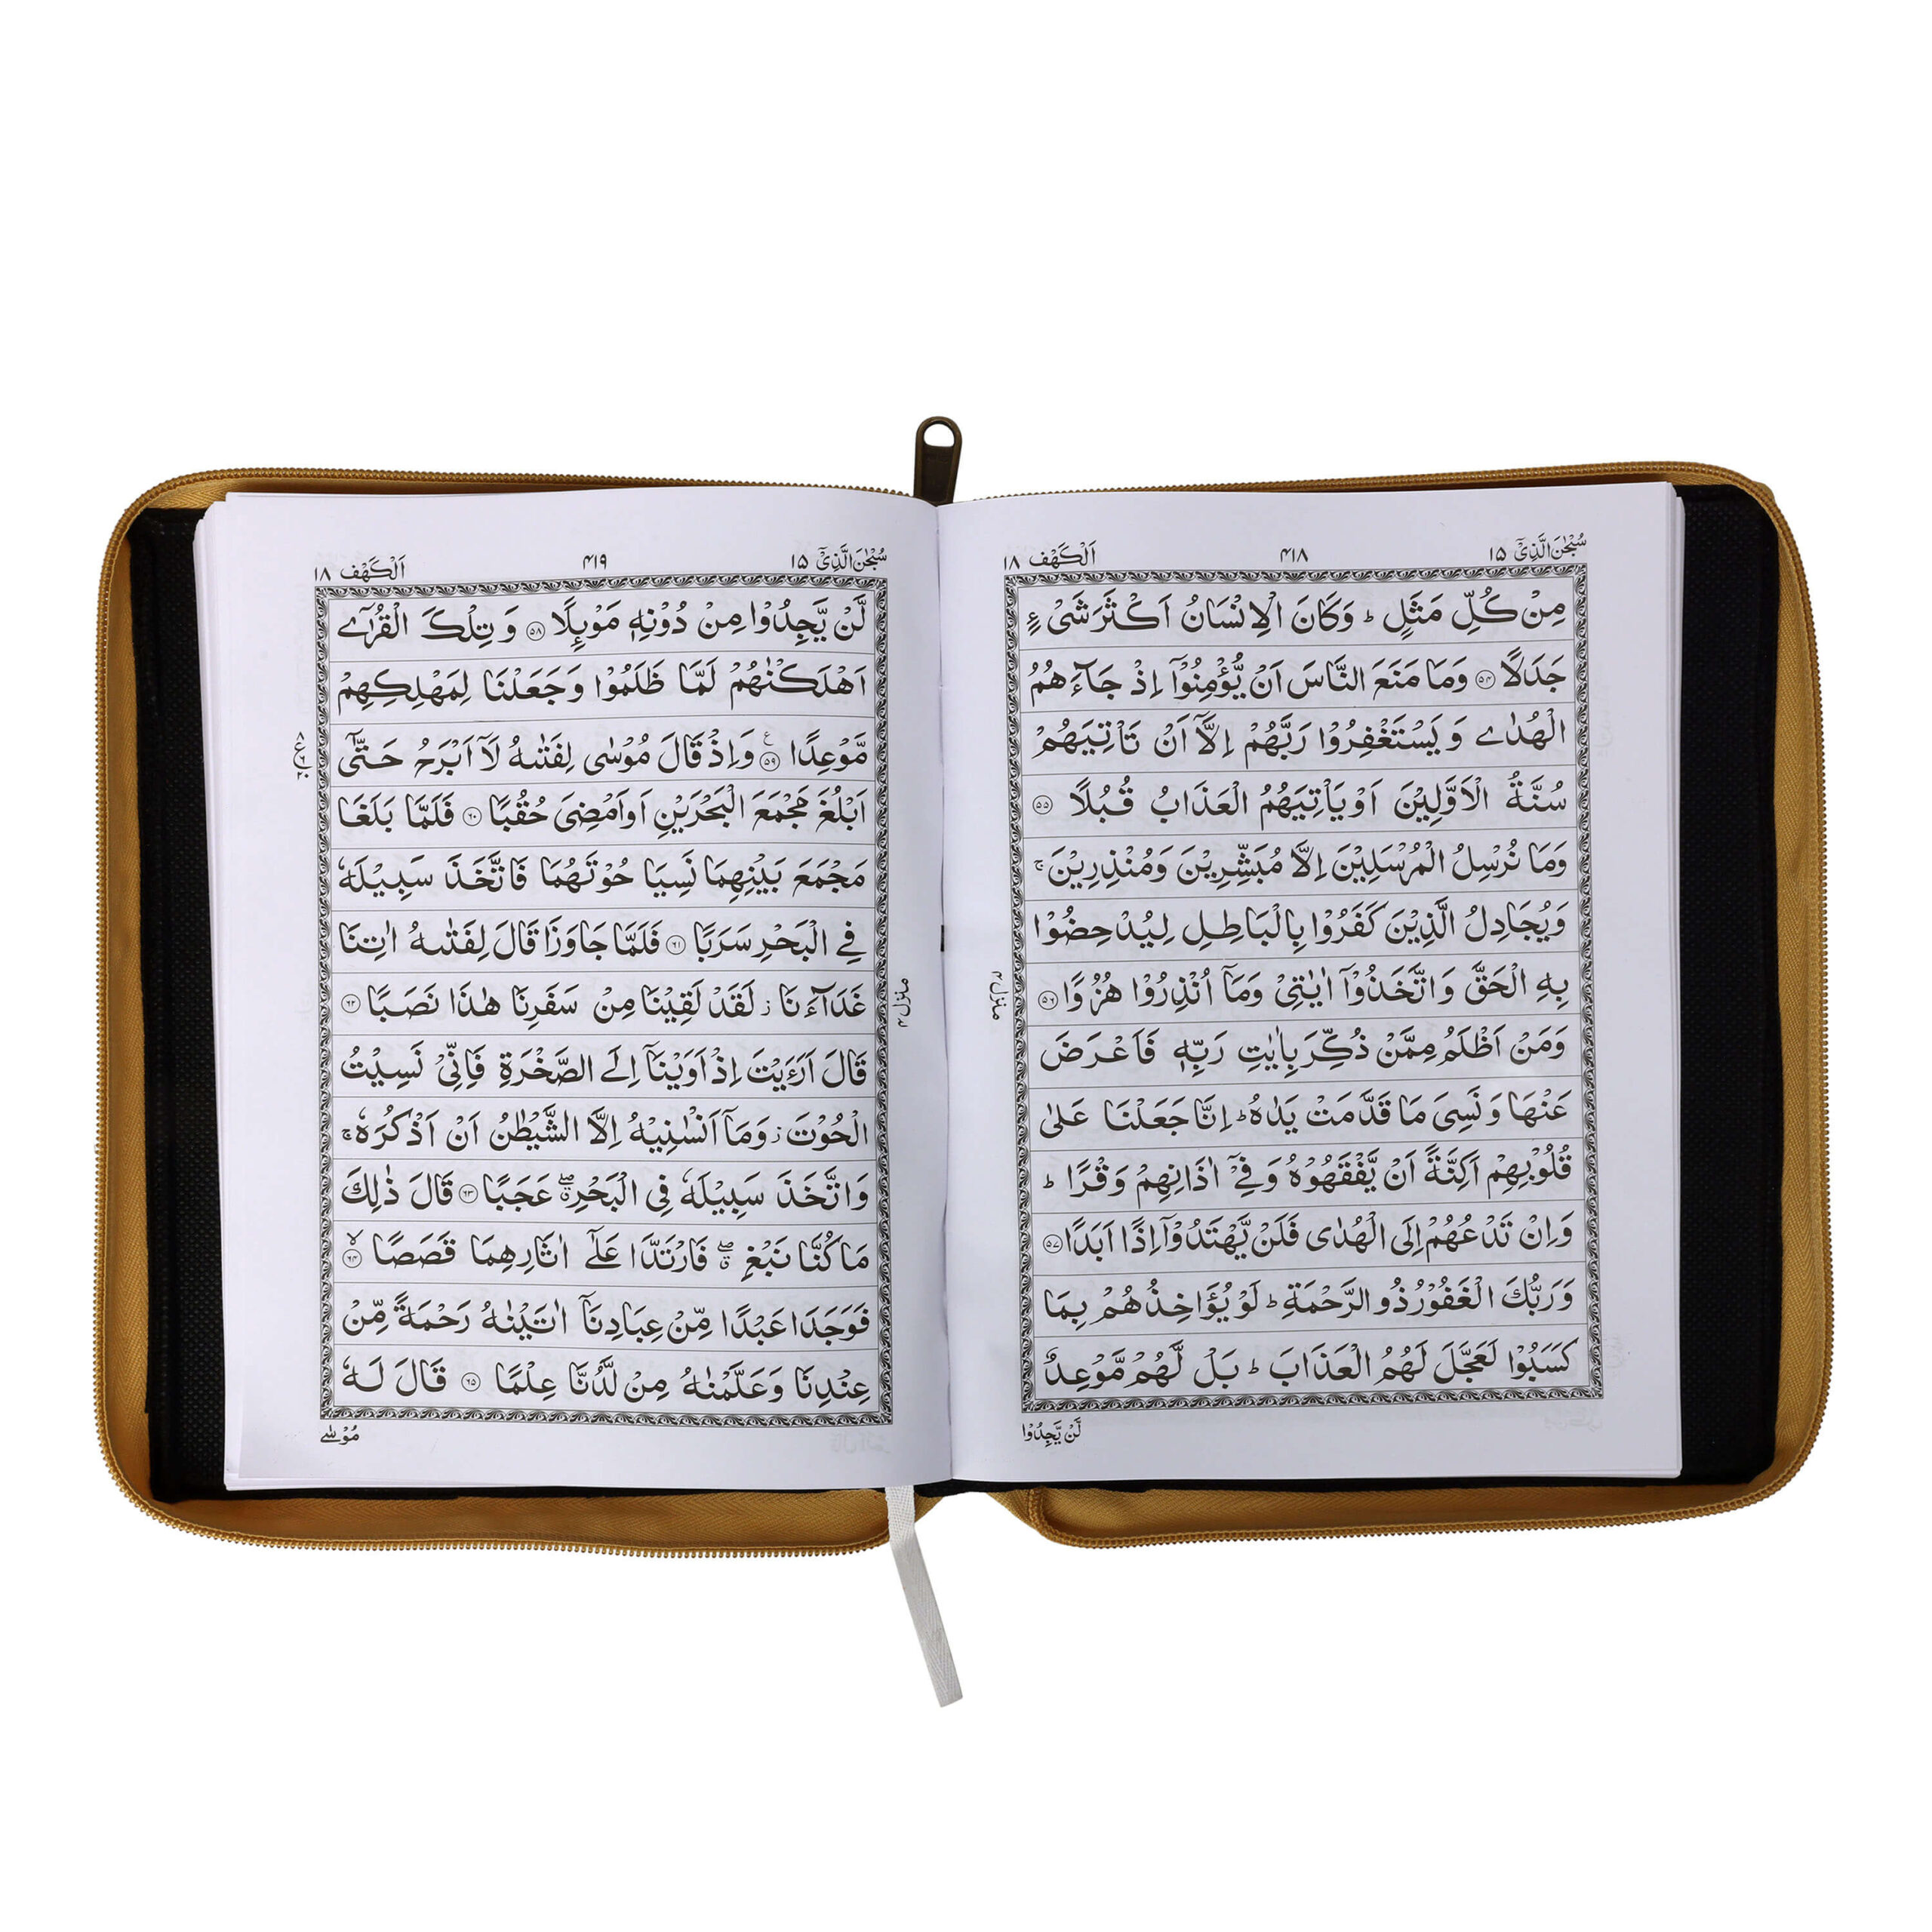 سُبْحٰنَ الَّذِیْۤ ١٥
٤١٨
اَلْكَهْف ١٨
مِنْ كُلِّ مَثَلٍ ؕ وَكَانَ الْاِنْسَانُ اَكْثَرَ شَیْءٍ
جَدَلًا ۝٥٤ وَمَا مَنَعَ النَّاسَ اَنْ یُّؤْمِنُوْۤا اِذْ جَآءَهُمُ
الْهُدٰی وَیَسْتَغْفِرُوْا رَبَّهُمْ اِلَّاۤ اَنْ تَاْتِیَهُمْ
سُنَّةُ الْاَوَّلِیْنَ اَوْ یَاْتِیَهُمُ الْعَذَابُ قُبُلًا ۝٥٥
وَمَا نُرْسِلُ الْمُرْسَلِیْنَ اِلَّا مُبَشِّرِیْنَ وَمُنْذِرِیْنَ ۚ
وَیُجَادِلُ الَّذِیْنَ كَفَرُوْا بِالْبَاطِلِ لِیُدْحِضُوْا
بِهِ الْحَقَّ وَاتَّخَذُوْۤا اٰیٰتِیْ وَمَاۤ اُنْذِرُوْا هُزُوًا ۝٥٦
وَمَنْ اَظْلَمُ مِمَّنْ ذُكِّرَ بِاٰیٰتِ رَبِّهٖ فَاَعْرَضَ
عَنْهَا وَنَسِیَ مَا قَدَّمَتْ یَدٰهُ ؕ اِنَّا جَعَلْنَا عَلٰی
قُلُوْبِهِمْ اَكِنَّةً اَنْ یَّفْقَهُوْهُ وَفِیْۤ اٰذَانِهِمْ وَقْرًا ؕ
وَاِنْ تَدْعُهُمْ اِلَی الْهُدٰی فَلَنْ یَّهْتَدُوْۤا اِذًا اَبَدًا ۝٥٧
وَرَبُّكَ الْغَفُوْرُ ذُو الرَّحْمَةِ ؕ لَوْ یُؤَاخِذُهُمْ بِمَا
كَسَبُوْا لَعَجَّلَ لَهُمُ الْعَذَابَ ؕ بَلْ لَّهُمْ مَّوْعِدٌ
لَّنْ یَّجِدُوْا
منزل ٤
سُبْحٰنَ الَّذِیْۤ ١٥
٤١٩
اَلْكَهْف ١٨
لَّنْ یَّجِدُوْا مِنْ دُوْنِهٖ مَوْىِٕلًا ۝٥٨ وَتِلْكَ الْقُرٰۤی
اَهْلَكْنٰهُمْ لَمَّا ظَلَمُوْا وَجَعَلْنَا لِمَهْلِكِهِمْ
مَّوْعِدًا ۝٥٩ وَاِذْ قَالَ مُوْسٰی لِفَتٰىهُ لَاۤ اَبْرَحُ حَتّٰۤی
اَبْلُغَ مَجْمَعَ الْبَحْرَیْنِ اَوْ اَمْضِیَ حُقُبًا ۝٦٠ فَلَمَّا بَلَغَا
مَجْمَعَ بَیْنِهِمَا نَسِیَا حُوْتَهُمَا فَاتَّخَذَ سَبِیْلَهٗ
فِی الْبَحْرِ سَرَبًا ۝٦١ فَلَمَّا جَاوَزَا قَالَ لِفَتٰىهُ اٰتِنَا
غَدَآءَنَا ؗ لَقَدْ لَقِیْنَا مِنْ سَفَرِنَا هٰذَا نَصَبًا ۝٦٢
قَالَ اَرَءَیْتَ اِذْ اَوَیْنَاۤ اِلَی الصَّخْرَةِ فَاِنِّیْ نَسِیْتُ
الْحُوْتَ ؗ وَمَاۤ اَنْسٰىنِیْهُ اِلَّا الشَّیْطٰنُ اَنْ اَذْكُرَهٗ ۚ
وَاتَّخَذَ سَبِیْلَهٗ فِی الْبَحْرِ ۖۗ عَجَبًا ۝٦٣ قَالَ ذٰلِكَ
مَا كُنَّا نَبْغِ ۖۗ فَارْتَدَّا عَلٰۤی اٰثَارِهِمَا قَصَصًا ۙ۝٦٤
فَوَجَدَا عَبْدًا مِّنْ عِبَادِنَاۤ اٰتَیْنٰهُ رَحْمَةً مِّنْ
عِنْدِنَا وَعَلَّمْنٰهُ مِنْ لَّدُنَّا عِلْمًا ۝٦٥ قَالَ لَهٗ
مُوْسٰی
منزل ٤